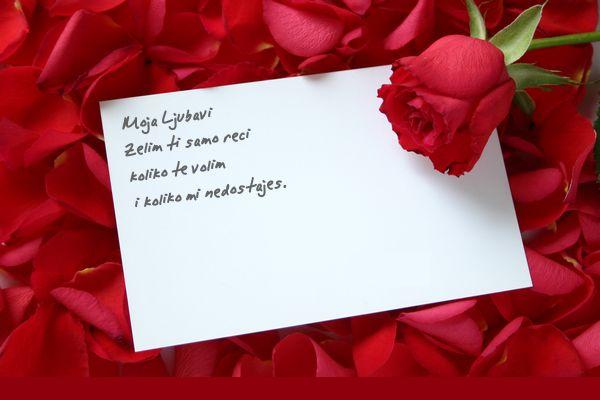 Moja Ljubavi
Zelim ti samo reci
koliko te volim
i koliko mi nedostajes.